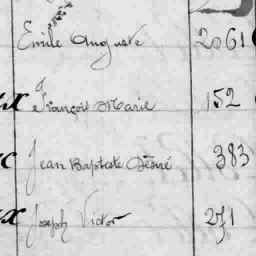 Emile Auguste 2061
François Marie 152
Jean Baptiste Désiré 383
Joseph Victor 271